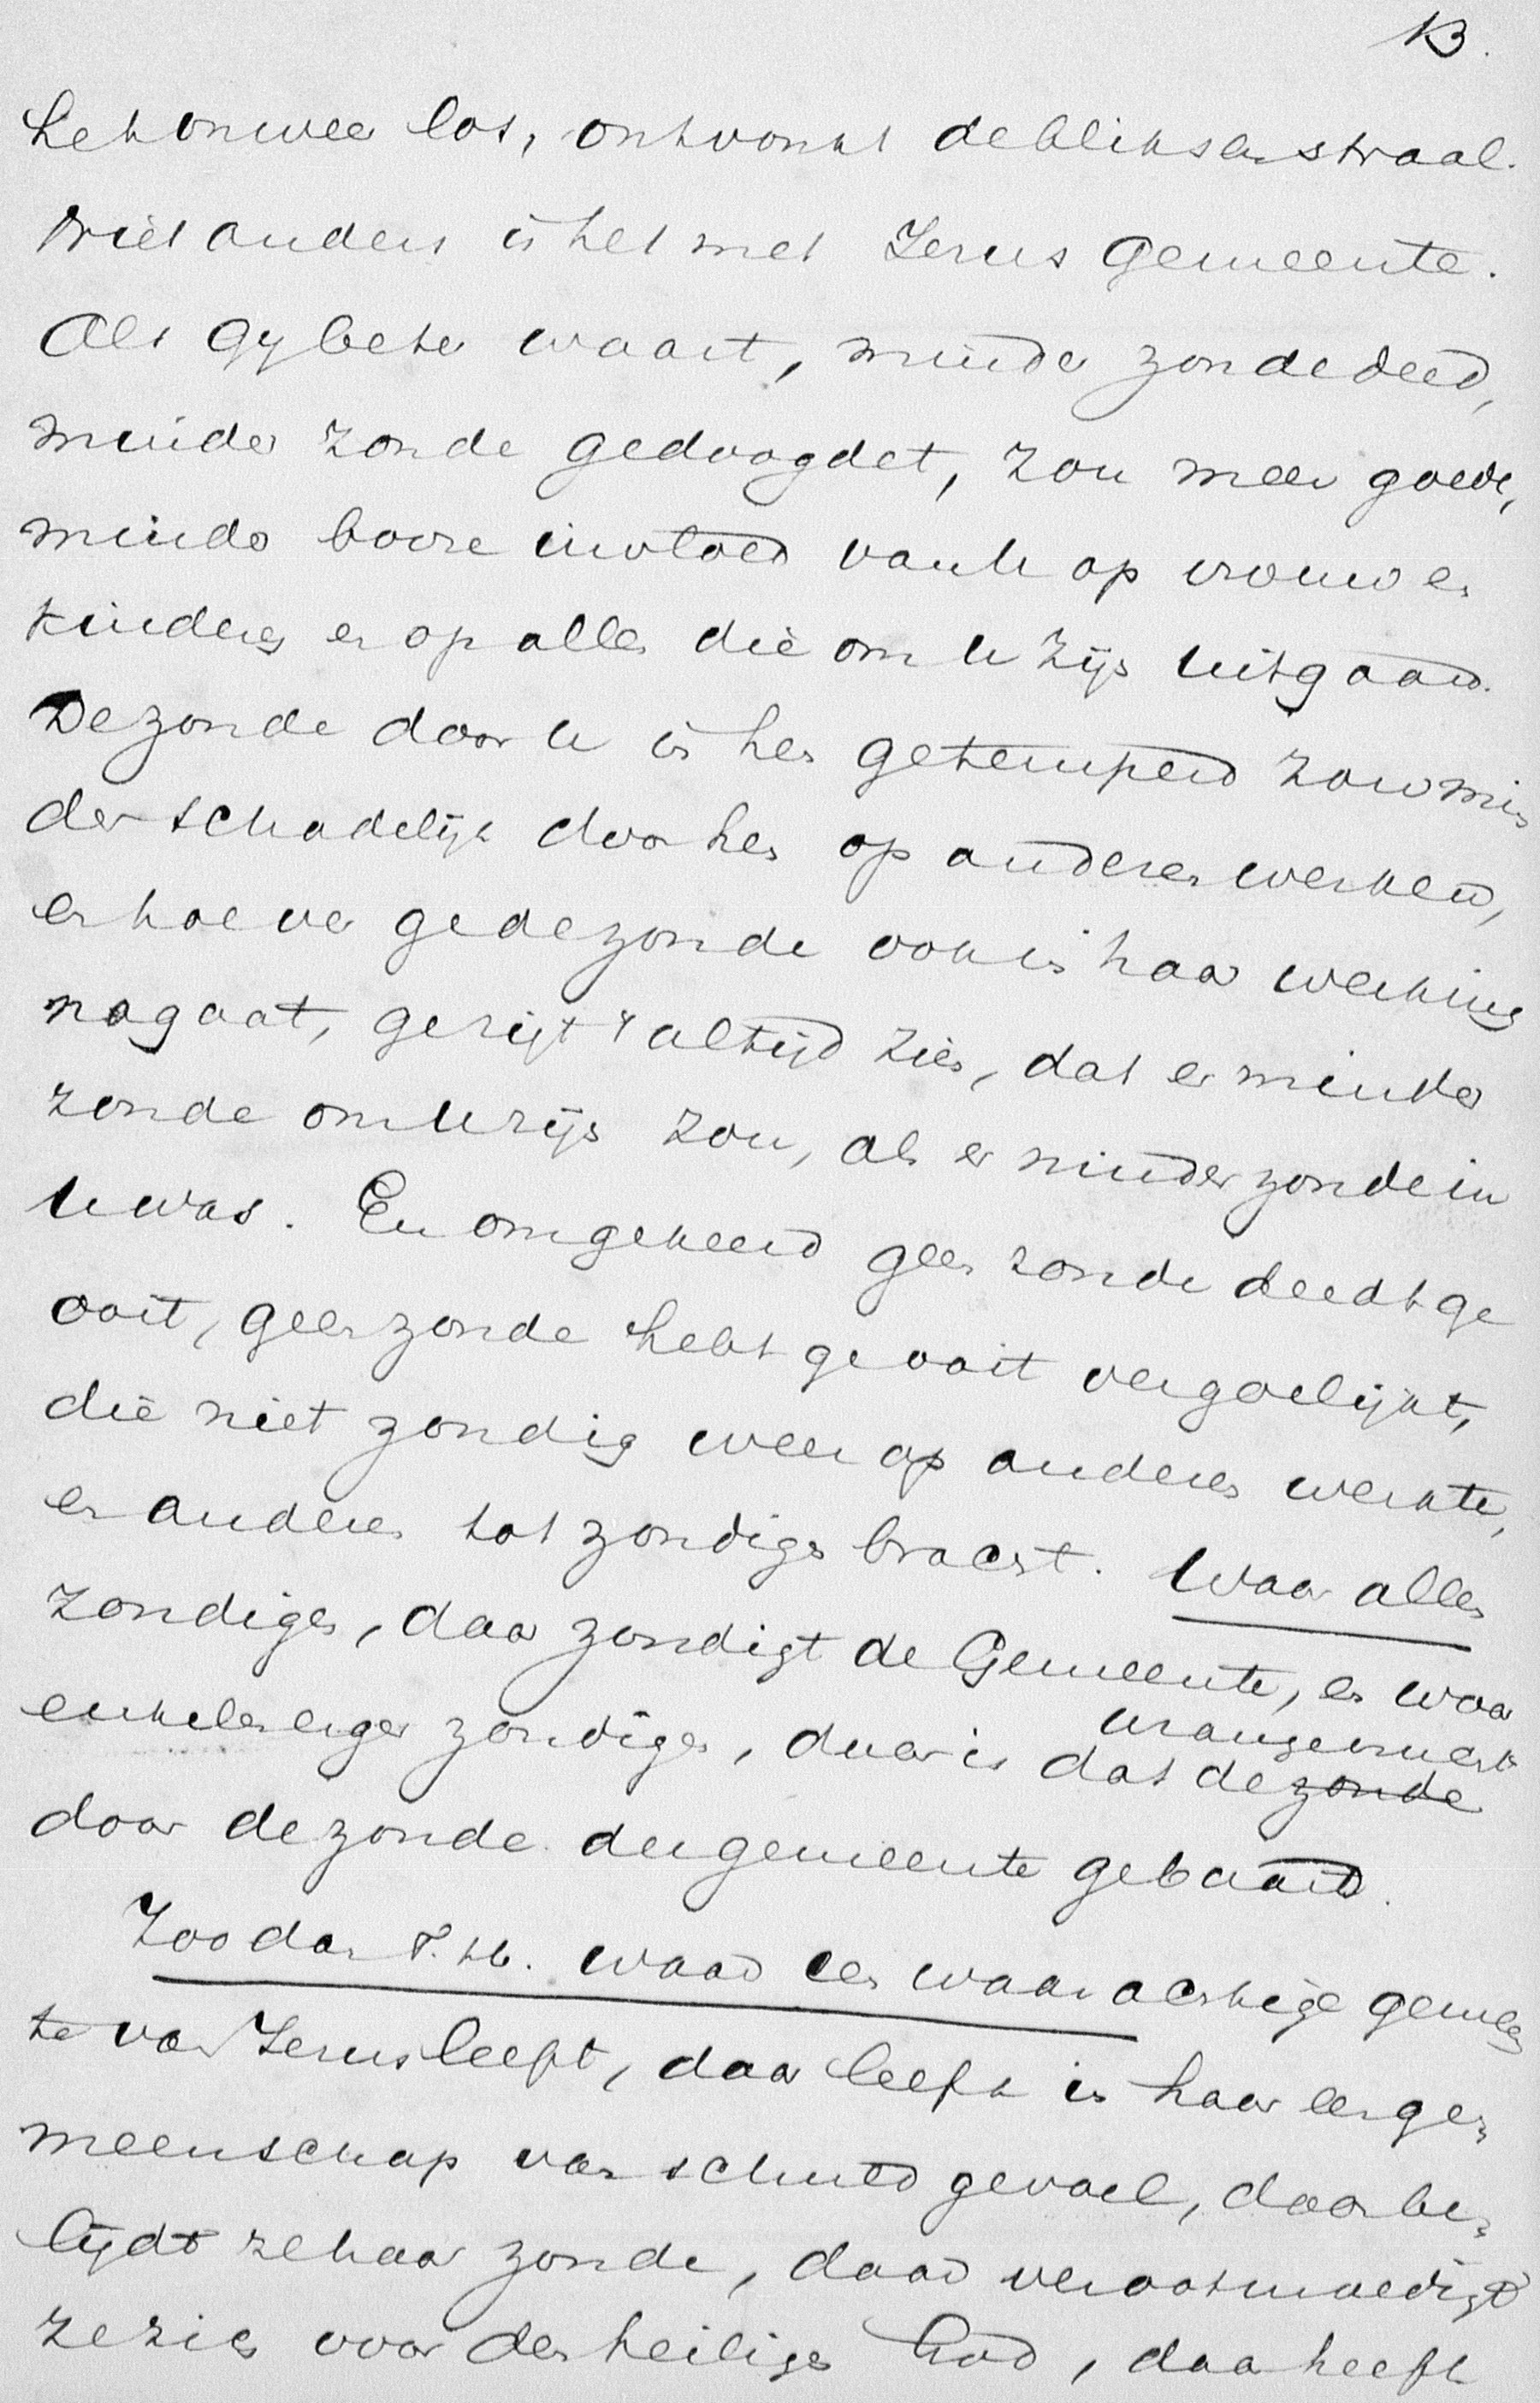 13.
het onweer los, ontvonkt de bliksemstraal.
Niet anders is het met Jezus Gemeente.
Als Gy beter waart, minder zonde deed,
minder zonde gedoogdet, zou meer goede,
minder booze invloed van U op vrouw en
kinderen en op allen die om U zijn uitgaan.
De zonde door U in hen getemperd zou min
der schadelijk door hen op anderen werken,
en hoe ver ge de zonde ook in haar werking
nagaat, ge zijt 't altijd zien, dat er minder
zonde om U zijn zou, als er minder zonde in
U was. En omgekeerd geen zonde deedt ge
ooit, geen zonde hebt ge ooit vergoelijkt,
die niet zondig weer op anderen werkte,
en anderen tot zondigen bracht. Waar allen
zondigen, daar zondigt de Gemeente, en waar
enkelen erger zondigen, daar is dat de zonde
wangewerk
door de zonde der gemeente gebaard.
Zoo dan T. H. waar een waarachtige gemeen
te van Jezus leeft, daar leeft in haar een ge=
meenschap van schuld gevoel, daar be=
lijdt ze haar zonde, daar verootmoedigt
ze zich voor den heiligen God, daar heeft